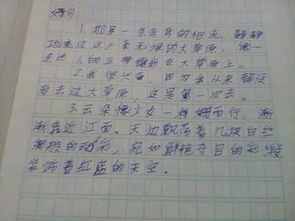 好句:
1.那是一条弯弯的细流,静静
地流过这片广袤无垠的大草原,像一
条迷人的玉带镶嵌在大草原上。
2.我很兴奋,因为我从来都没
有去过大草原,这是第一次去。
3.云朵像少女一样姗姗而行,渐
渐靠近江面。天边飘荡着几块白丝
绸般的云彩,宛如鲜艳夺目的彩缎
装饰着红蓝的天空。